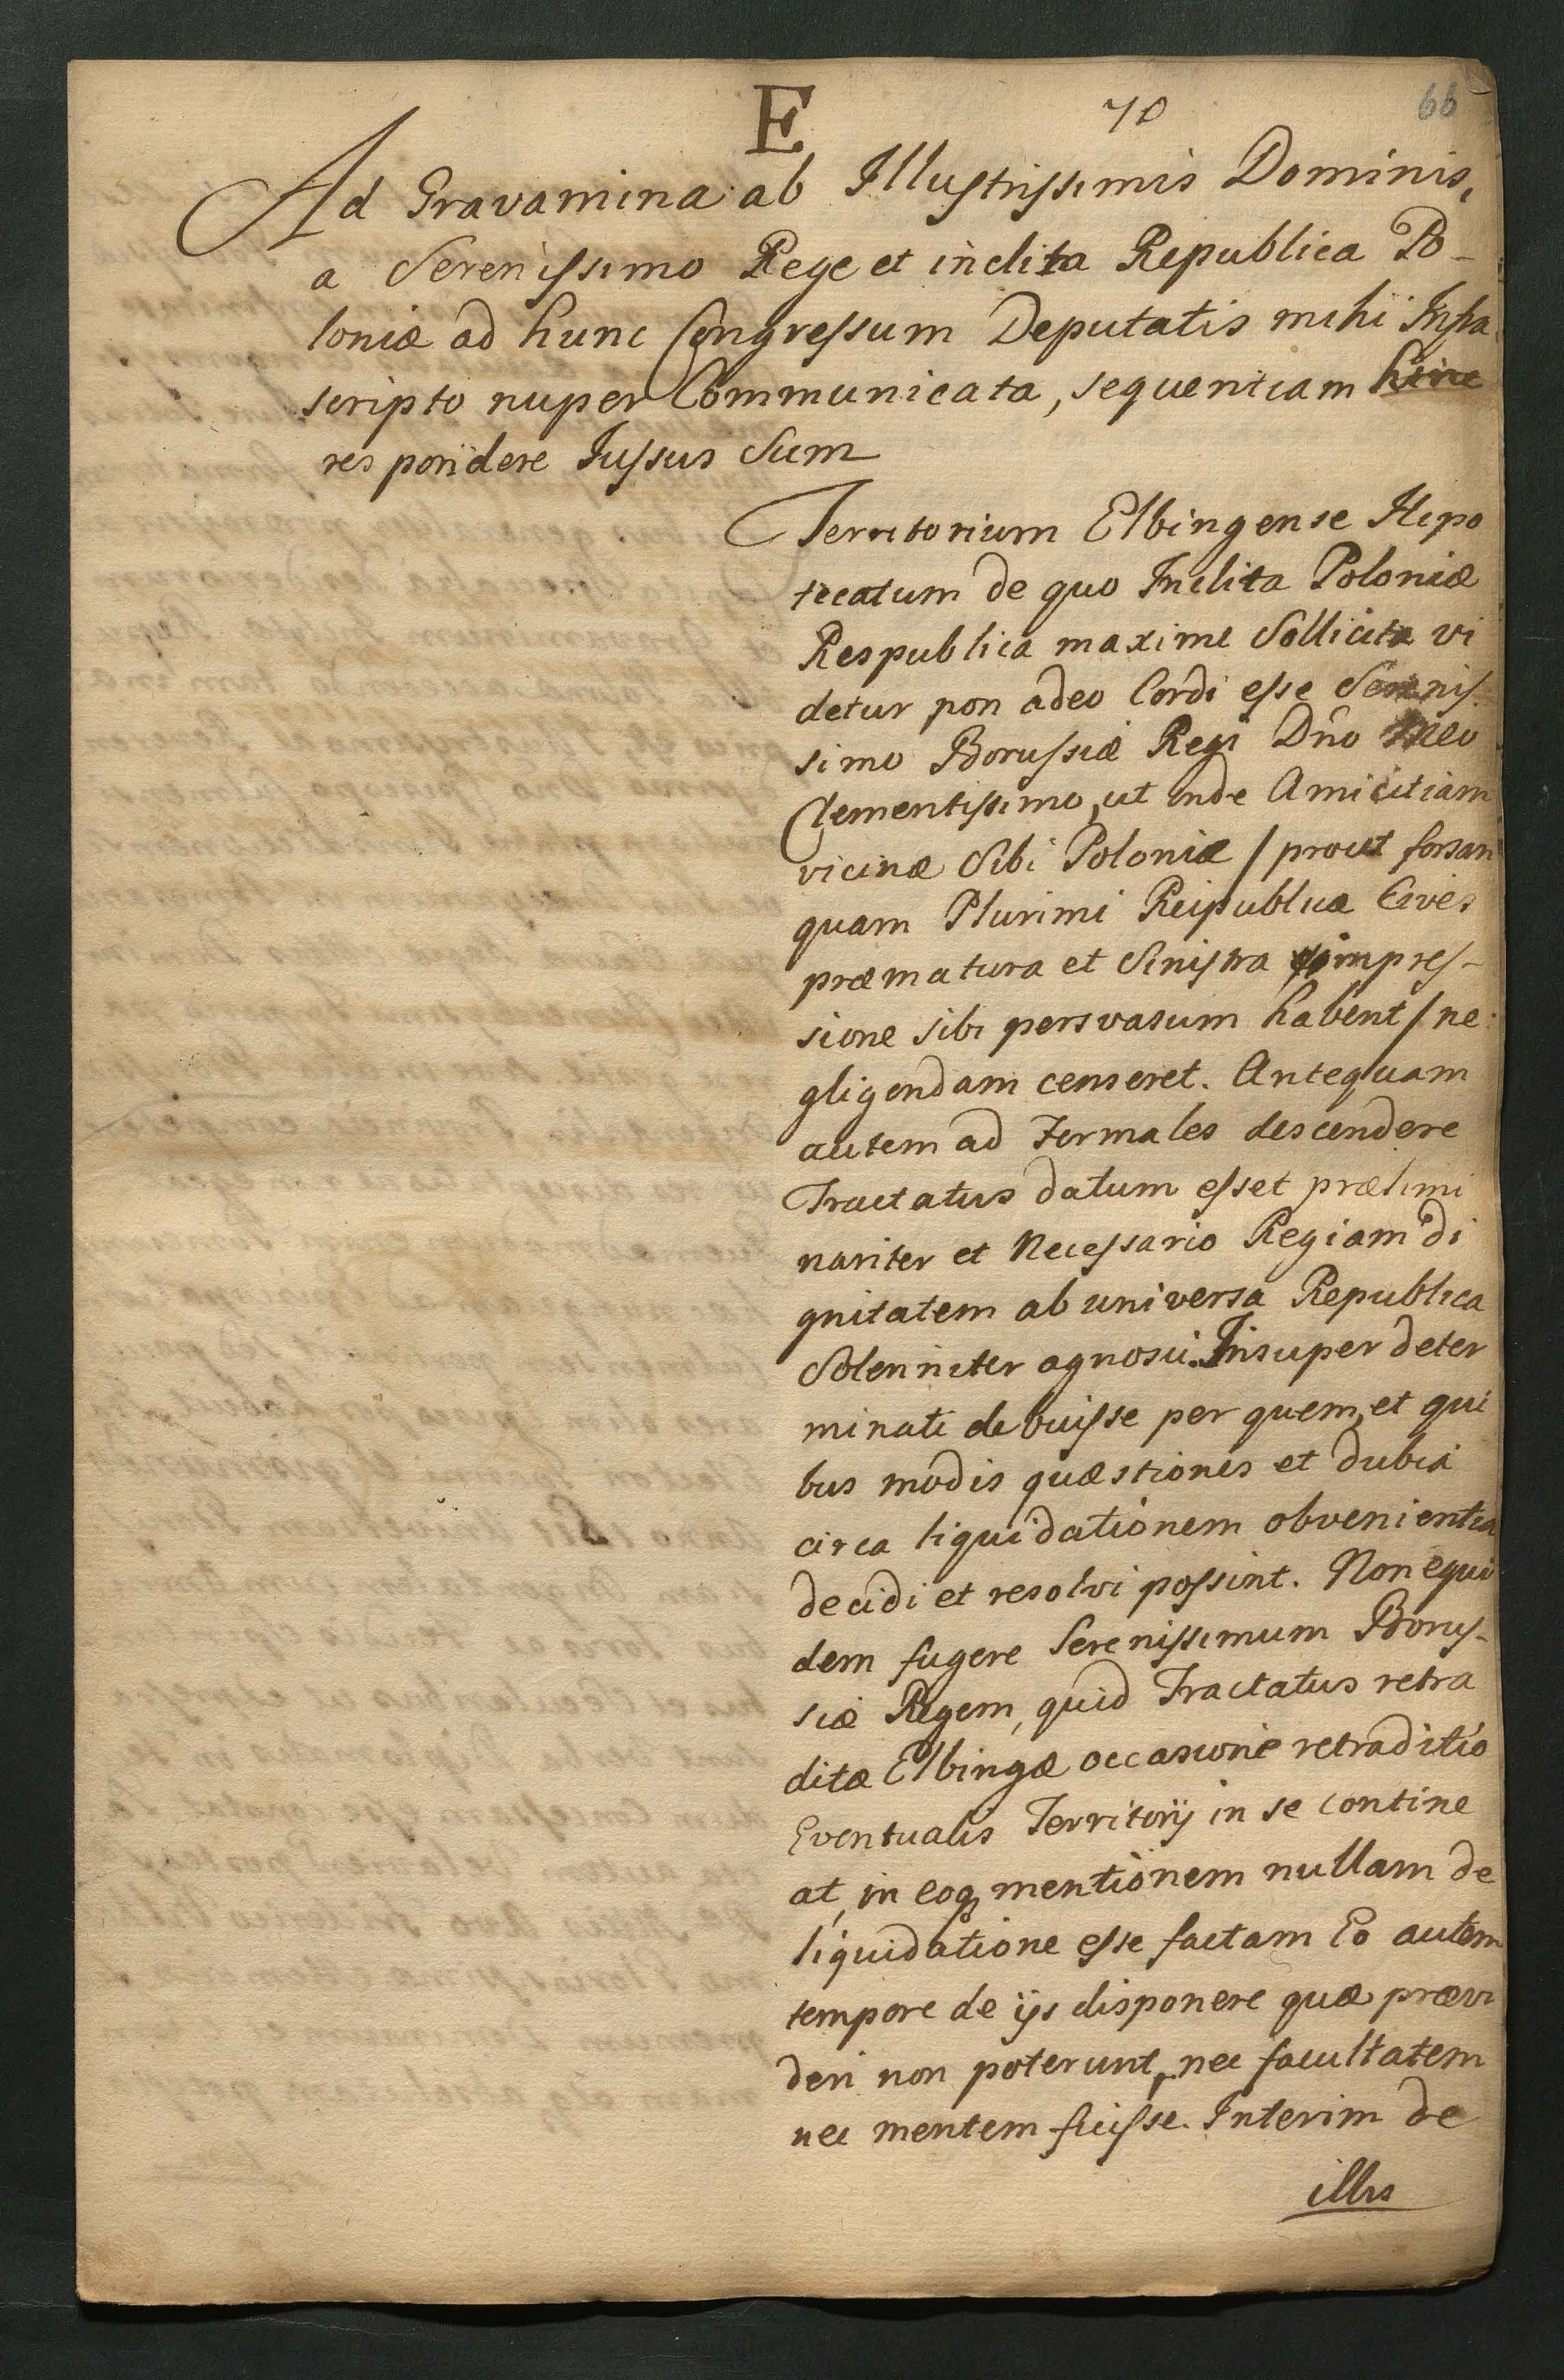 E
70
66
Ad Gravamina ab Illustrissimis Dominis,
a Serenissimo Rege et inclita Republica Po-
loniæ ad hunc Congressum Deputatis mihi Infra
scripto nuper Communicata, sequentiam hinc
respondere Jussus Sum
Territorium Elbingense Hipo
tecatum de quo Inclita Poloniæ
Respublica maxime Sollicita vi
detur non adeo Cordi esse Serenis
simo Borussiæ Regi Dn̄o Meo
Clementissimo, ut inde Amicitiam
vicinæ Sibi Poloniæ / prout forsan
quam Plurimi Reipublicæ Cives
præmatura et Sinistra impres-
sione sibi persvasum habent / ne
gligendam censeret. Antequam
autem ad Formales descendere
Tractatus datum esset prælimi
nariter et Necessario Regiam di
gnitatem ab universa Republica
Solenniter agnosci. Insuper deter
minati debuisse per quem, et qui
bus modis quæstiones et dubia
circa liquidationem obvenientia
decidi et resolvi possint. Non equi
dem fugere Serenissimum Borus-
siæ Regem, quid Tractatus retra
ditæ Elbingæ occasione retraditio
Eventualis Territorij in se contine
at, in eoq mentionem nullam de
liquidatione esse factam Eo autem
tempore de ijs disponere quæ prævi
deri non poterunt, nec facultatem
nec mentem fuisse. Interim de
illis